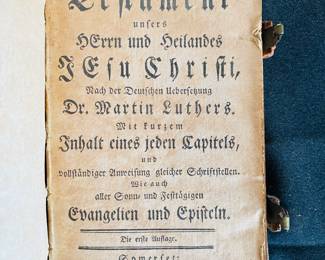 Testament
unsers
HErrn und Heilandes
JEsu Christi,
Nach der Deutschen Uebersetzung
Dr. Martin Luthers.
Mit kurzem
Inhalt eines jeden Capitels,
und
vollständiger Anweisung gleicher Schriftstellen.
Wie auch
aller Sonn- und Festtägigen
Evangelien und Episteln.
Die erste Auflage.
Somerset: